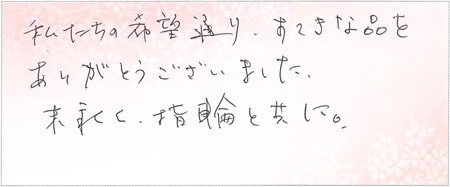 私たちの希望通り、すてきな品を
ありがとうございました。
末永く、指輪と共に。